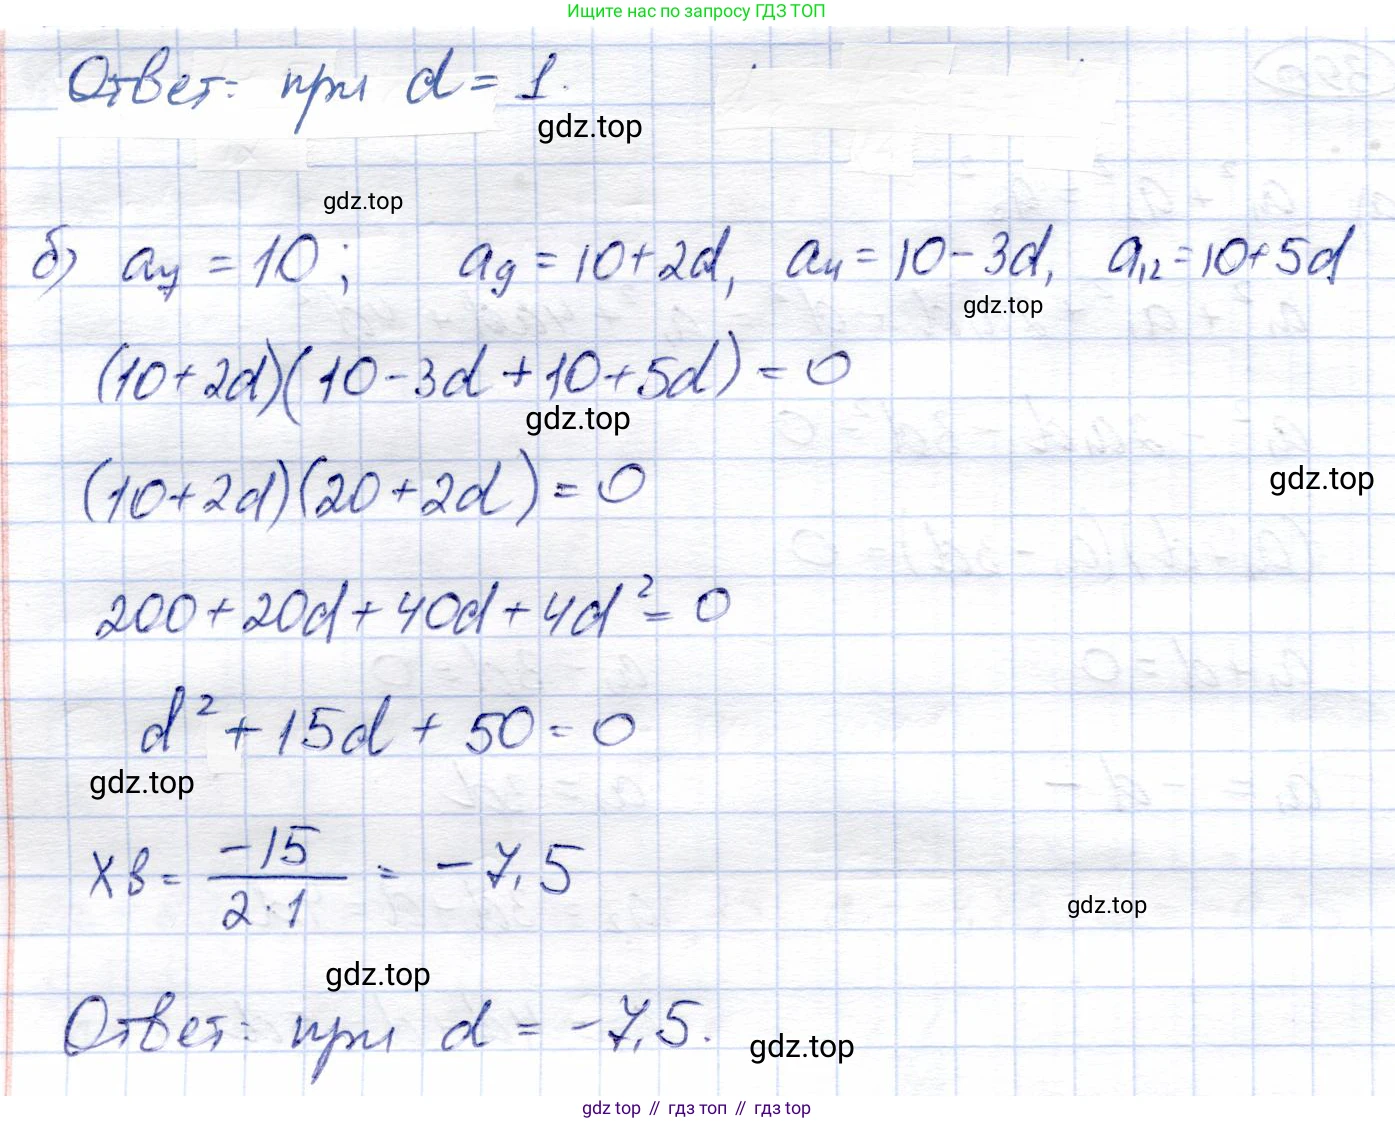 Ищите нас по запросу ГДЗ ТОП
Ответ: при d = 1.
gdz.top
gdz.top
б) a₇ = 10; a₉ = 10 + 2d, a₄ = 10 - 3d, a₁₂ = 10 + 5d
gdz.top
(10 + 2d)(10 - 3d + 10 + 5d) = 0
gdz.top
(10 + 2d)(20 + 2d) = 0
gdz.top
200 + 20d + 40d + 4d² = 0
d² + 15d + 50 = 0
gdz.top
xв = -15 / 2·1 = -7,5
gdz.top
gdz.top
Ответ: при d = -7,5.
gdz.top
gdz top // гдз топ // гдз top